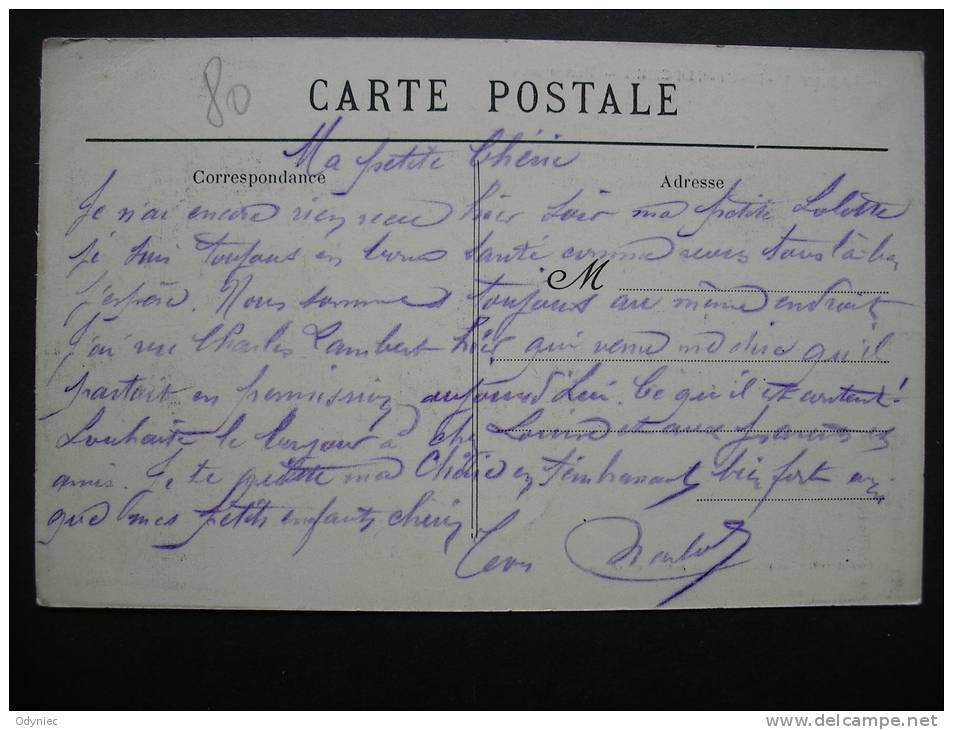 80
CARTE POSTALE
Ma petite Chérie
Correspondance
Adresse
Je n'ai encore rien recu hier soir ma petite
je suis toujours en bonne santé comme vous tous là bas
j'espère. Nous sommes toujours au même endroit
M
J'ai vu Charles Lambert hier qui venu me dire qu'il
partait en permission aujourd'hui. Ce qu'il est content!
Souhaite le bonjour à chez Louise et aux parents et
amis. Je te quitte ma Chérie en t'embrassant bien fort ainsi
que mes petits enfants chéris
Léon
Odyniec
www.delcampe.net